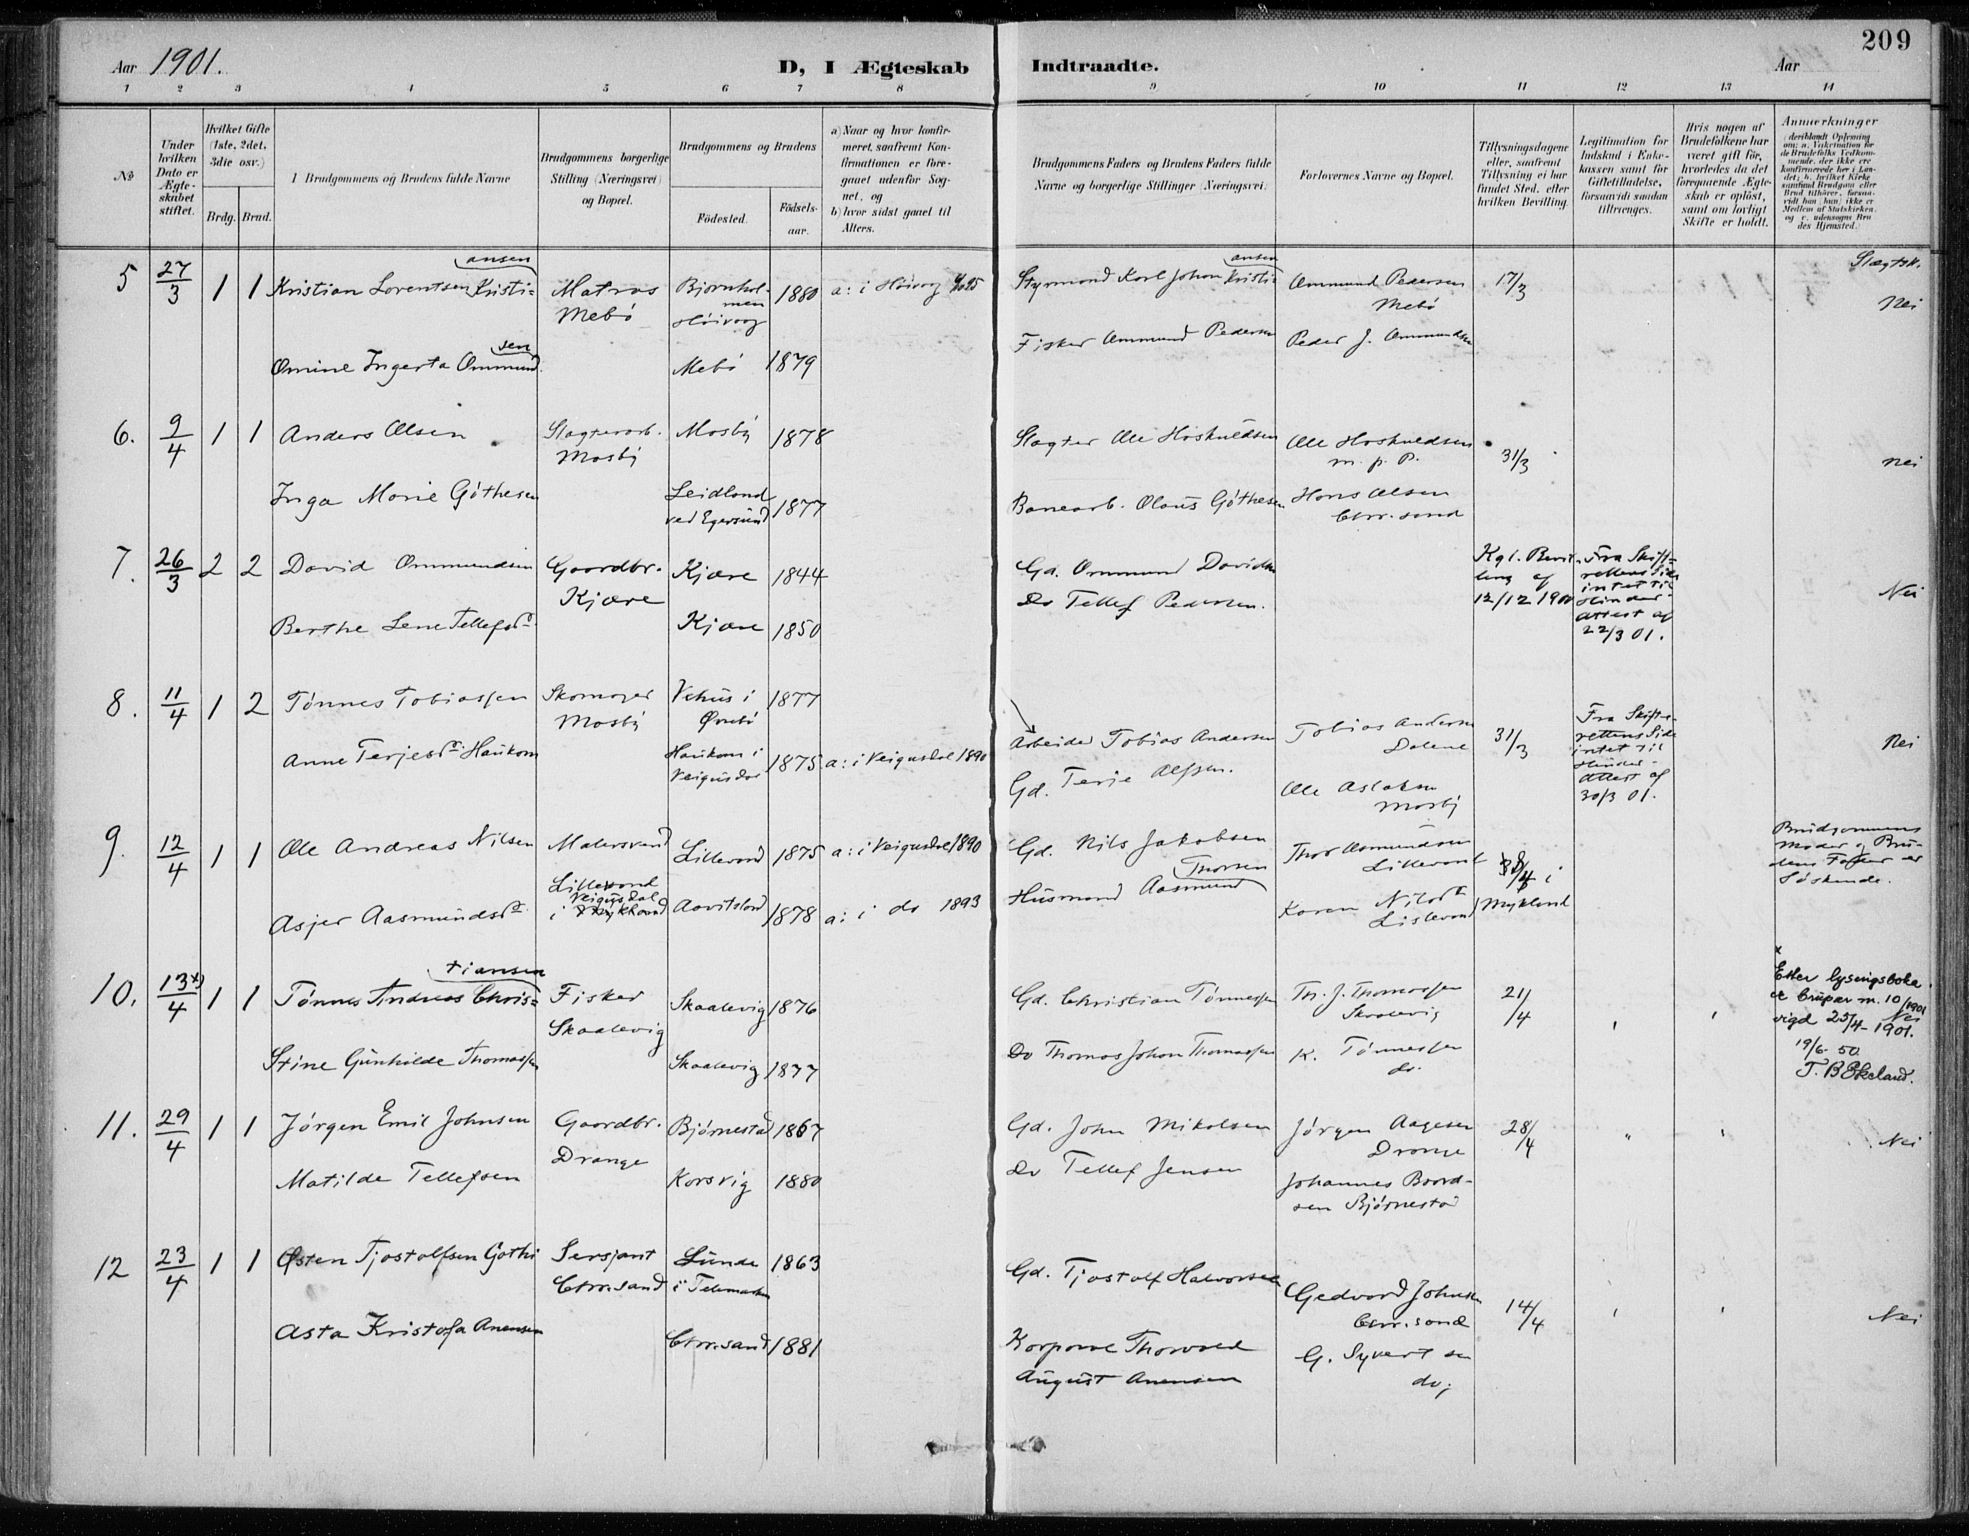 209
Aar 1901. D, I Ægteskab Indtraadte. Aar
1 2 3 4 5 6 7 8 9 10 11 12 13 14
No
Under hvilken Dato er Ægteskabet stiftet.
Hvilket Gifte (1ste, 2det, 3die osv.)
Brdg. Brud.
Brudgommens og Brudens fulde Navne
Brudgommens borgerlige Stilling (Næringsvei) og Bopæl.
Brudgommens og Brudens
Fødested. Fødsels-aar.
a) Naar og hvor konfirmeret, saafremt Konfirmationen er foregaaet udenfor Sognet, og
b) hvor sidst gaaet til Alters.
Brudgommens Faders og Brudens Faders fulde Navne og borgerlige Stillinger (Næringsvei)
Forlovernes Navne og Bopæl.
Tillysningsdagene eller, saafremt Tillysning ei har fundet Sted, efter hvilken Bevilling.
Legitimation for Indskud i Enkekassen samt for Giftetilladelse, forsaavidt saadan tiltrænges.
Hvis nogen af Brudefolkene har været gift før, hvorledes da det foregaaende Ægteskab er opløst, samt om lovligt Skifte er holdt.
Anmærkninger
5 27/3 1 1 Kristian Lorentsen Kristiansen Matros Mebø Bjørnholmen Høivaag 1880 a: i Høivaag Styrmand Karl Johan Kristiansen Ommund Pedersen Mebø 17/3 Slægtsk. Nei
Omine Ingerta Ommundsen Mebø 1879 Fisker Ommund Pedersen Peder J. Ommundsen
6. 9/4 1 1 Anders Olsen Slagterarb. Mosby Mosby 1878 Slagter Ole Hoskuldsen Ole Hoskuldsen m. p. P. 31/3 nei
Inga Marie Gøthesen Leidland ved Egersund 1877 Banearb. Olaus Gøthesen Hans Olsen Chrr.sand
7. 26/3 2 2 David Ommundsen Gaardbr. Kjære Kjære 1844 Gd. Ommund Davidsen Kgl. Bevilling af 12/12 1900 Fra Skifterettens Side intet til Hinder Attest af 22/3 01. Nei
Berthe Lene Tellefsd. Kjære 1850 Do Tellef Pedersen.
8. 11/4 1 2 Tønnes Tobiassen Skomager Mosby Vehus i Øvrebø 1877 Arbeider Tobias Andersen Tobias Andersen Dalene 31/3 Fra Skifterettens Side intet til Hinder Attest af 30/3 01. Nei
Anne Terjesd. Haukom Haukom i Veigusdal 1875 a: i Veigusdal 1890 Gd. Terje Alfsen. Ole Aslaksen Mosby
9. 12/4 1 1 Ole Andreas Nilsen Malersvend Lillevand 1875 a: i Veigusdal 1890 Gd. Nils Jakobsen Thor Asmundsen Lillevand i Mykland Brudgommens Moder og Brudens Fader er Søskende.
Asjer Aasmundsd. Lillevand Veigusdal i Mykland Aavitsland 1878 a: i do 1893 Husmand Aasmund Thorsen Karen Nilsd. Lislevand
10. 13x)/4 1 1 Tønnes Andreas Christiansen Fisker Skaalevig Skaalevig 1876 Gd. Christian Tønnessen Th. J. Thomassen Skaalevig 21/4 Nei
Stine Gunhilde Thomassen Skaalevig 1877 Do Thomas Johan Thomassen K. Tønnessen do.
x Etter lysingsboka er brupar nr. 10/1901 vigd 25/4-1901. 19/6-50. T. B Ekeland.
11. 29/4 1 1 Jørgen Emil Johnsen Gaardbr. Drange Bjørnestad 1867 Gd. John Mikalsen Jørgen Aagesen Drange 28/4 Nei
Matilde Tellefsen Korsvig 1880 Do Tellef Jensen Johannes Baardsen Bjørnestad
12 23/4 1 1 Østen Tjostolfsen Gothi Sersjant Chrr.sand Lunde i Telemarken 1863 Gd. Tjostolf Halvorsen Gedvard Johnsen Chrr.sand 14/4 Nei
Asta Kristofa Anensen Chrr.sand 1881 Korporal Thorvald August Anensen G. Syvertsen do;